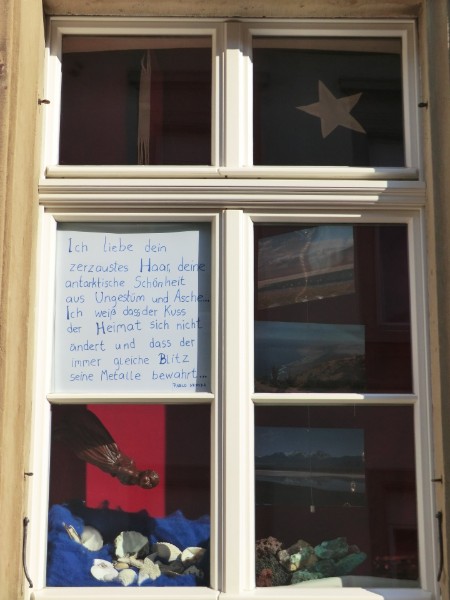 Ich liebe dein
zerzaustes Haar, deine
antarktische Schönheit
aus Ungestüm und Asche...
Ich weiß dass der Kuss
der Heimat sich nicht
ändert und dass der
immer gleiche Blitz
seine Metalle bewahrt...